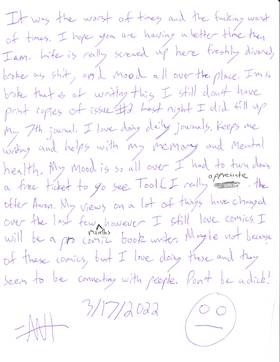 It was the worst of times and the fucking worst
of times. I hope you are having a better time then
I am. Life is really screwed up here freshly divorced,
broke as shit, and mood all over the place. I'm so
broke that as of writing this I still dont have
print copies of issue #2 Last night I did fill up
my 7th journal. I love doing daily journals. Keeps me
writing and helps with my memory and mental
health. My mood is so all over I had to turn down
a free ticket to go see Tool (I really appreciate the
offer Aaron. My views on a lot of things have changed
over the last few months however I still love comics I
will be a pro comic book writer. Maybe not because
of these comics, but I love doing these and they
seem to be connecting with people. Don't be a dick!
3/17/2022